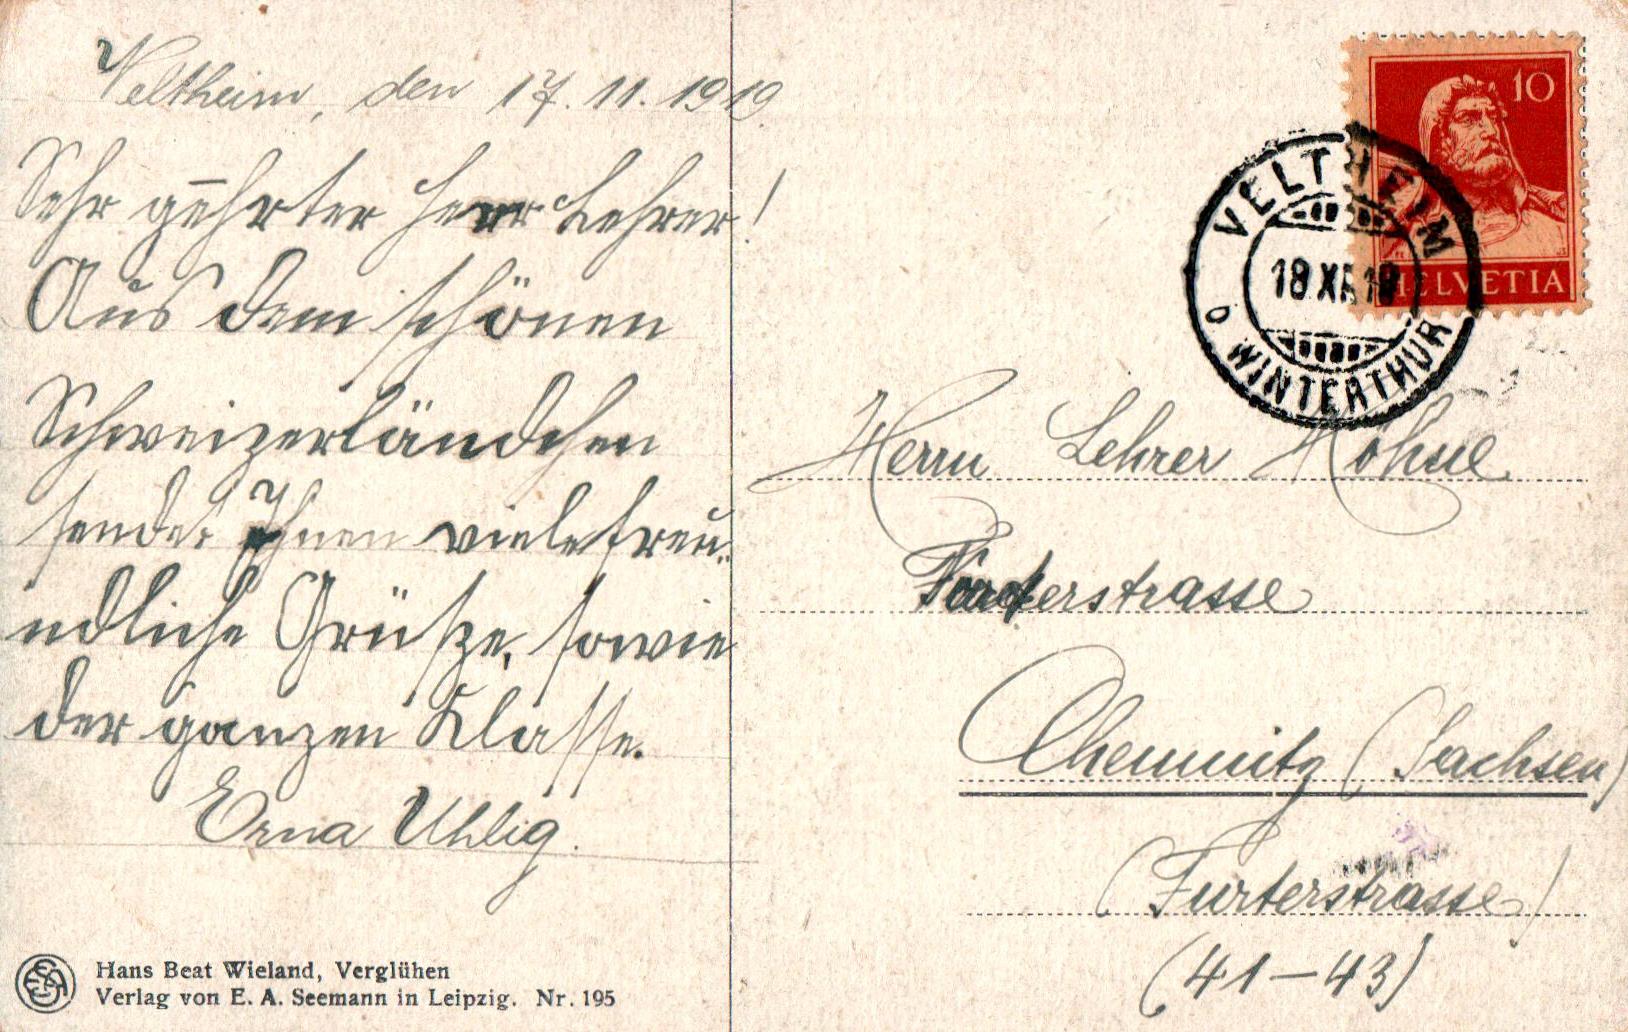 Veltheim, den 17. 11. 1919.
Sehr geehrter Herr Lehrer!
Aus dem schönen
Schweizerländchen
sendet Ihnen viele freu-
ndliche Grüße, sowie
der ganzen Klasse.
Erna Uhlig.
Hans Beat Wieland, Verglühen
Verlag von E. A. Seemann in Leipzig. Nr. 195
10
HELVETIA
VELTHEIM
18 XI 19
b WINTERTHUR
Herrn Lehrer Höhne
Furterstrasse
Chemnitz (Sachsen)
(Furterstrasse)
(41-43)